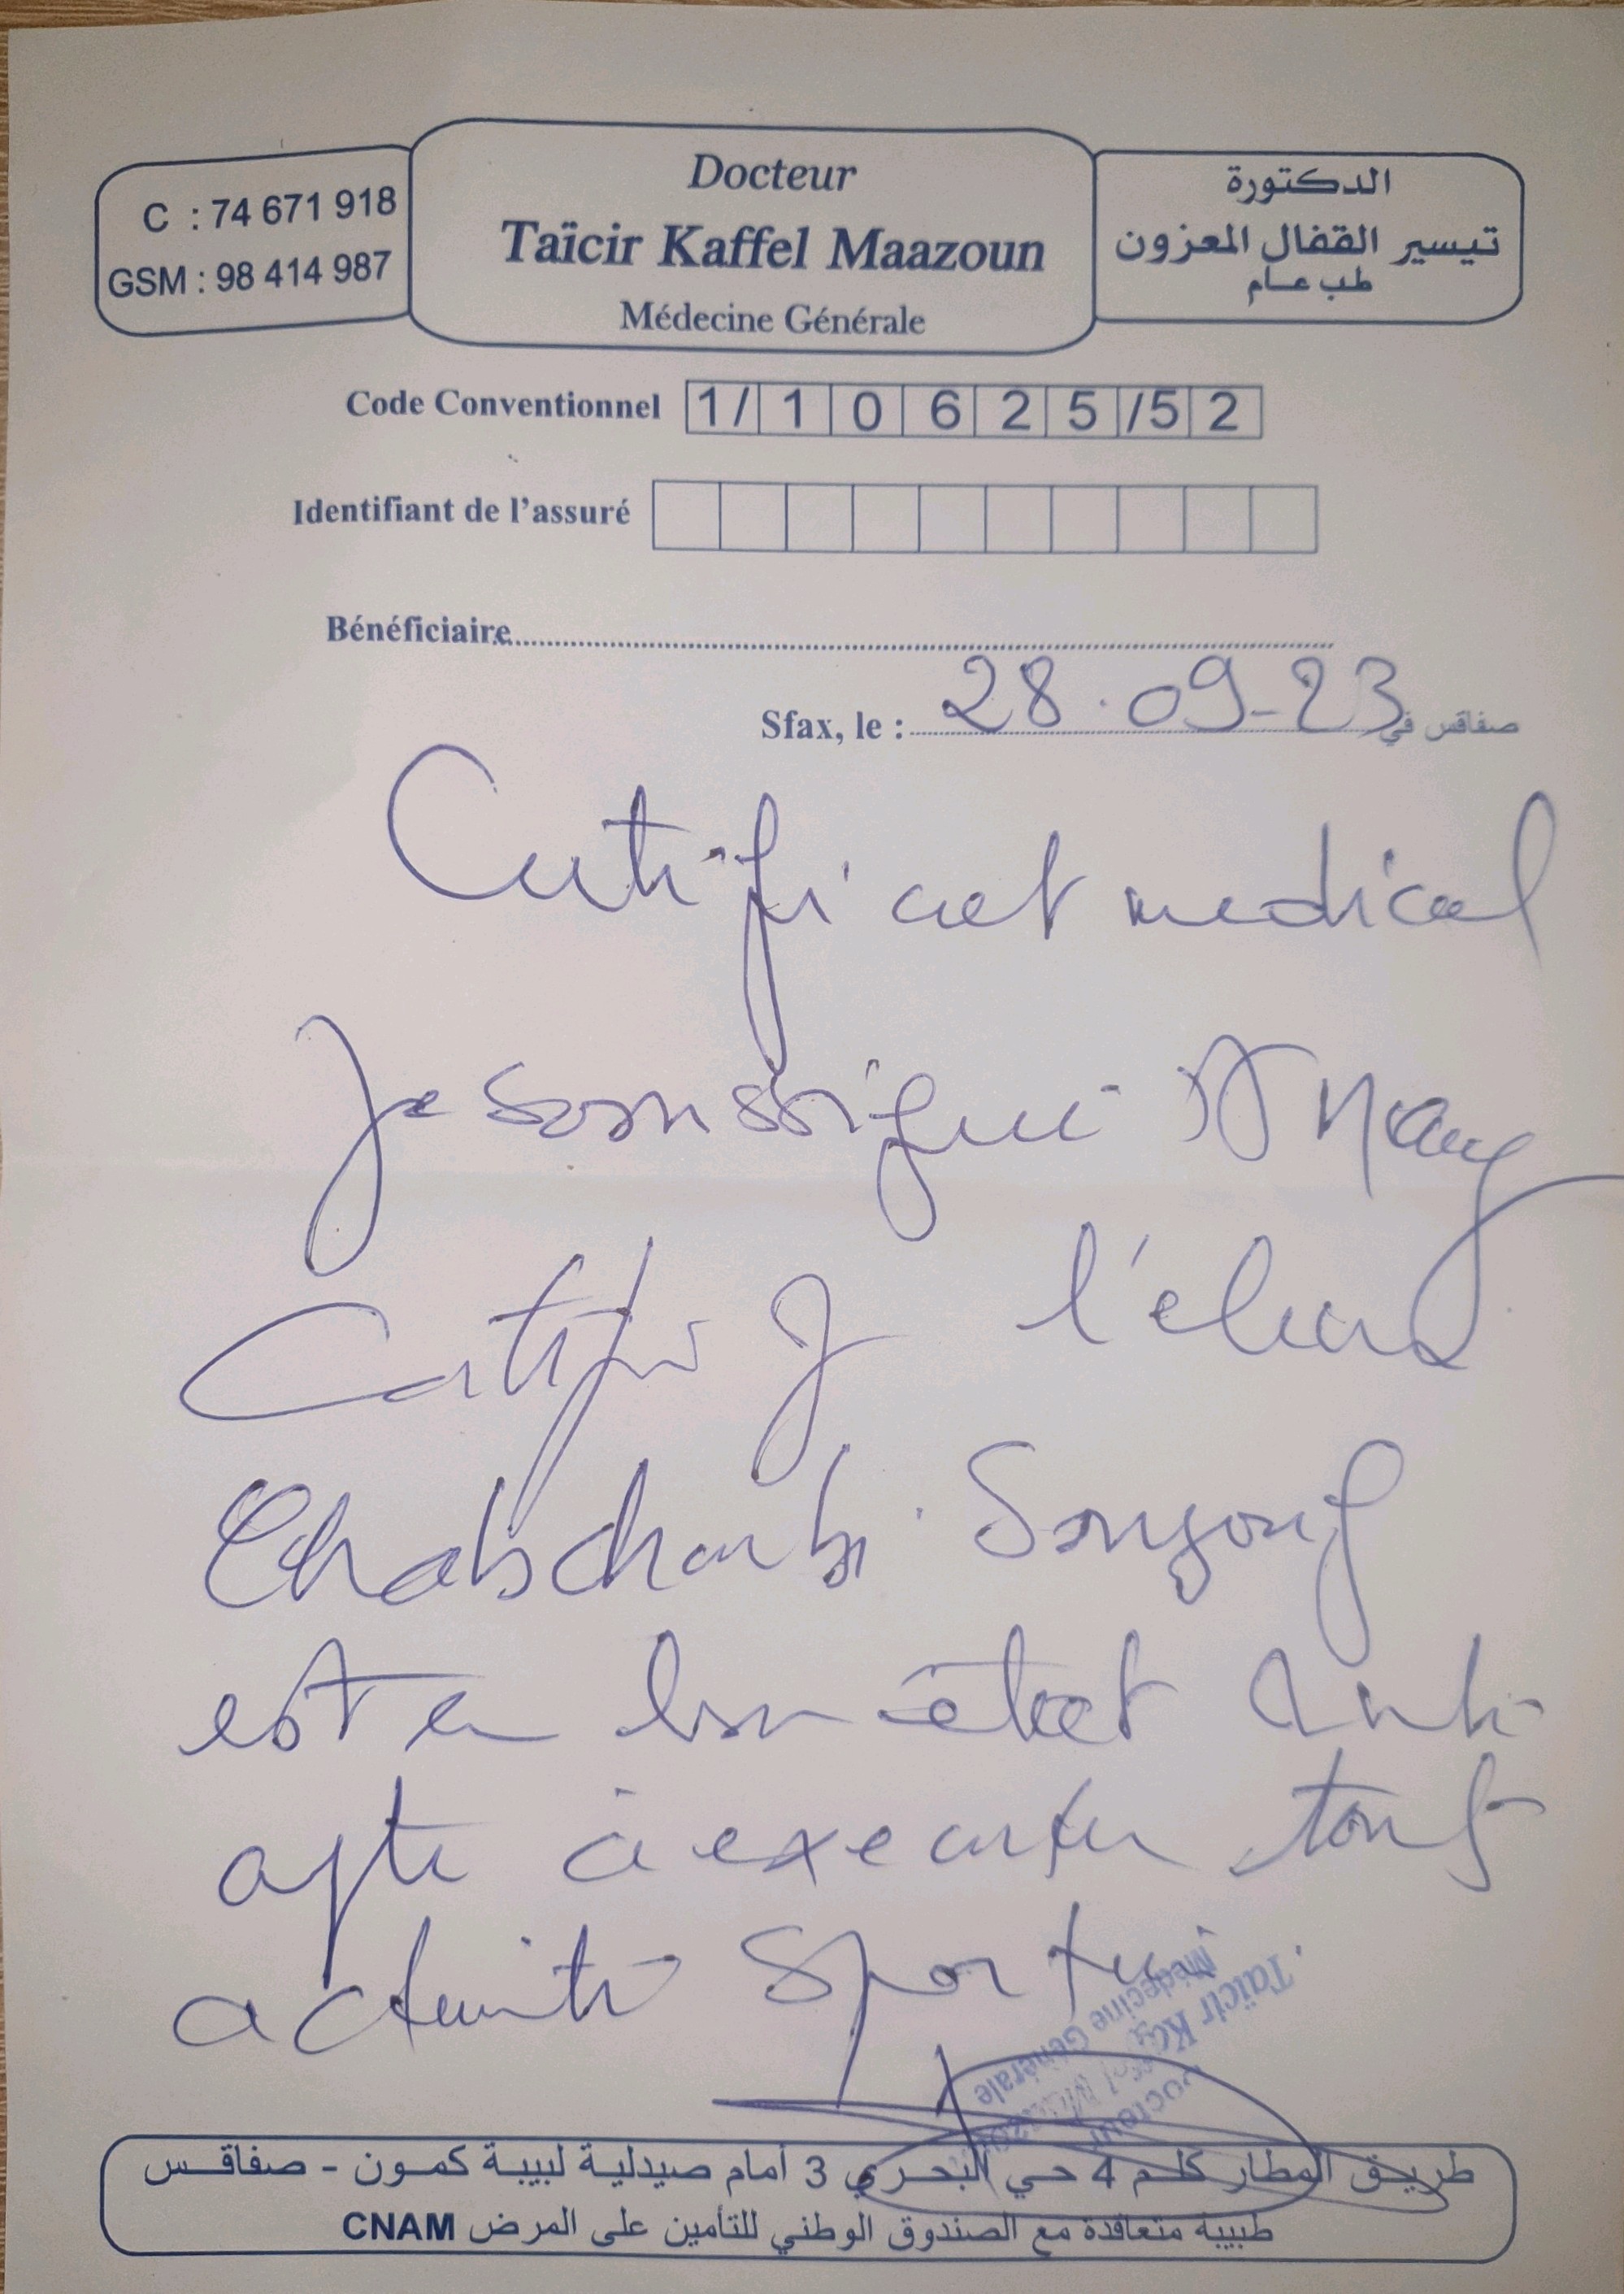 C : 74 671 918
GSM : 98 414 987
Docteur
Taïcir Kaffel Maazoun
Médecine Générale
الدكتورة
تيسير القفال المعزون
طب عام
Code Conventionnel 1/ 1 0 6 2 5 /5 2
Identifiant de l'assuré
Bénéficiaire
Sfax, le : 28.09-23 صفاقس في
Certificat medical
Je soussigné
Certifie l'élève
est en bon état
apte à executer toute
activité sportive
Docteur
Taïcir
Médecine Générale
طريق المطار كلم 4 حي البحري 3 أمام صيدلية لبيبة كمون - صفاقس
طبيبة متعاقدة مع الصندوق الوطني للتأمين على المرض CNAM